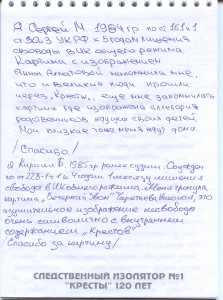 Я Сергей М. 1984 гр по ст 161 ч 1
а 3 а 2 УК РФ к 3 годам лишения
свободы в ИК общего режима
Картина с изображением
Анны Ахматовой напомнила мне,
что и великие люди прошли
через „Кресты", еще мне запомнилась
картина где изображена аллегория
родственников ждущих своих детей.
Мои близкие тоже меня ждут дома.
/Спасибо/
Я Кирилл Б. 1985 гр ранее судим. Осужден
по ст 228-1 ч 1 к 4 годам 1 месяцу лишения
свободы в ИК общего режима. Меня тронула
картина „Вечерний Звон" это
изображение несвободы
очень символично с внутренним
содержанием „Крестов"
Спасибо за картину/
СЛЕДСТВЕННЫЙ ИЗОЛЯТОР №1
"КРЕСТЫ" 120 ЛЕТ